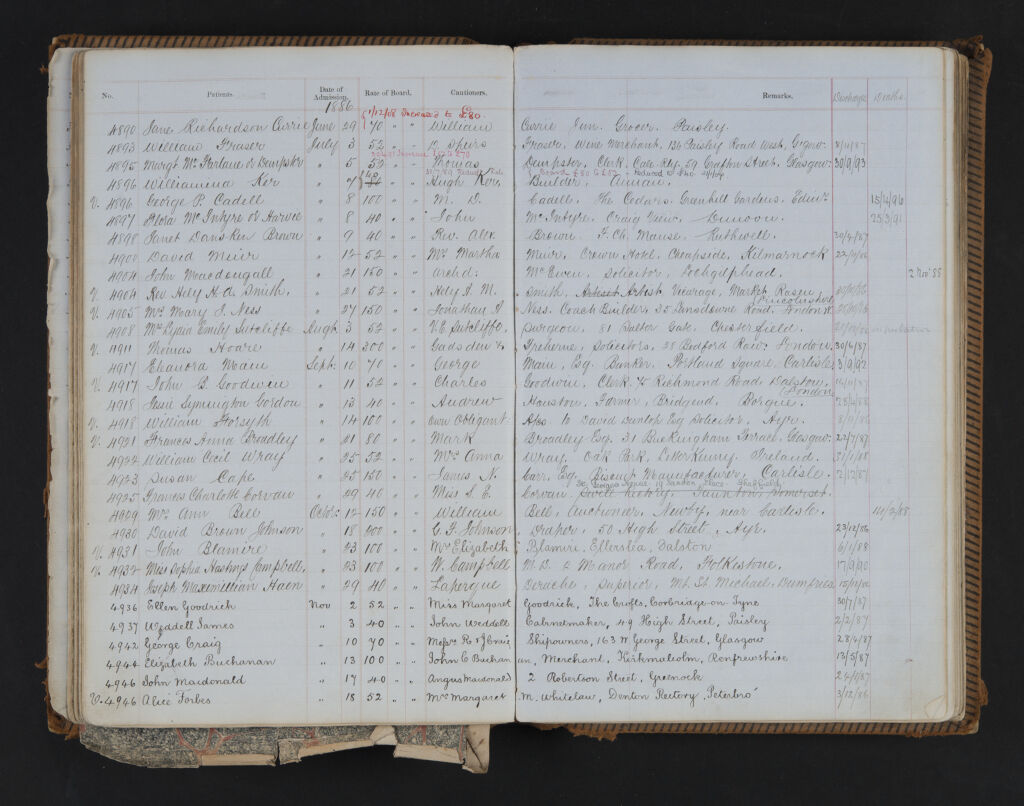 No. Patients. Date of Admission. Rate of Board. Cautioners. Remarks. Discharge Deaths
1886
1/12/08 Increased to £80.
4890 Jane Richardson Currie June 29 70 " " William Currie Jun. Grocer. Paisley. 8/11/87
4893 William Fraser July 3 52 " " Fraser, Wine Merchant, 136 Paisley Road West, Glasgow.
4895 Margt Mc Farlane or Dempster " 5 52 " " Thomas Dempster, Clerk, Cale. Rly. 59 Grafton Street, Glasgow. 30/9/93
4896 Williamina Ker " 7 40 " " Hugh Ker, Builder, Annan.
V. 4896 George P. Cadell " 8 100 " " M. D. Cadell. The Cedars. Greenhill Gardens. Edinr. 15/4/96
4897 Flora Mc Intyre or Harvie " 8 40 " " John Mc Intyre, Craig View, Dunoon. 25/3/91
4898 Janet Brown " 9 40 " " Rev. Alex. Brown. F. Ch. Manse. Ruthwell. 30/4/87
4900 David Meur " 12 52 " " Mrs Martha Muir, Crown Hotel, Cheapside, Kilmarnock
4904 John Macdougall " 21 150 " " Archd. McEwen, Solicitor, Lochgilphead. 2 Nov 88
V. 4904 Rev. Hely H. A. Smith. " 21 52 " " Hely I. M. Smith, Vicarage, Market Rasen Lincolnshire
V. 4905 Mrs Mary J. Ness " 27 150 " " Jonathan A Ness. Coach Builder, 35 Lansdowne Road, London W.
4908 Mrs Lydia Emily Sutcliffe Augt. 3 52 " " V. E. Sutcliffe, Surgeon, 81 Salter Gate. Chesterfield.
V. 4911 Thomas Hoare " 14 200 " " Gadsden & Treherne, Solicitors, 28 Bedford Row, London. 30/6/87
4917 Eleanora Main Sept. 10 70 " " George Main, Esq. Banker, Portland Square, Carlisle 3/9/92
V. 4917 John B. Goodwin " 11 52 " " Charles Goodwin, Clerk, Richmond Road Dalston, London
4918 Jessie Symington Gordon " 13 40 " " Andrew Houston, Farmer, Bridgend, Borgue.
V. 4918 William Forsyth " " 14 100 " " own Obligant. to David Dunlop Esq Solicitor, Ayr.
V. 4921 Frances Anna Broadley " 21 80 " " Mark Broadley Esq. 31 Buckingham Terrace, Glasgow. 22/7/87
4922 William Cecil Wray " 25 52 " " Mrs Anna Wray, Oak Park, Letterkenny Ireland. 31/1/88
4923 Susan Carr " 25 150 " " James N. Carr, Esq. Biscuit Manufacturer, Carlisle. 2/12/87
4925 Frances Charlotte Corvan " 29 40 " " Miss S. E. Corvan Taunton, Somerset.
4929 Mrs Ann Bell Octobr. 12 150 " " William Bell, Auctioneer, Newby, near Carlisle.
4930 David Brown Johnson " 18 200 " " C. F. Johnson, Draper, 50 High Street, Ayr. 23/12/86
V. 4931 John Blamire " 23 100 " " Mrs Elizabeth Blamire, Ellerslea, Dalston 6/1/88
V. 4932 Miss Sophia Hastings Campbell, " 23 100 " " W. Campbell M. D. Manor Road, Folkestone. 17/9/90
4934 Joseph Maximillian Haen " 29 40 " " Laperque Derache, Superior, Mt. St. Michael, Dumfries
4936 Ellen Goodrick Nov 2 52 " " Miss Margaret Goodrick, The Crofts, Corbridge-on-Tyne 30/7/87
4937 Weddell James " 3 40 " " John Weddell Cabinetmaker, 49 High Street, Paisley 2/2/87
4942 George Craig " 10 70 " " Messrs R & J Craig Shipowners, 163 W George Street, Glasgow 28/4/87
4944 Elizabeth Buchanan " 13 100 " " John C Buchanan, Merchant, Kirkmalcolm, Renfrewshire 13/5/87
4946 John Macdonald " 17 40 " " Angus Macdonald 2 Robertson Street, Greenock
V. 4946 Alice Forbes " 18 52 " " Mrs Margaret M. Whitelaw, Denton Rectory, Peterbro' 3/12/86